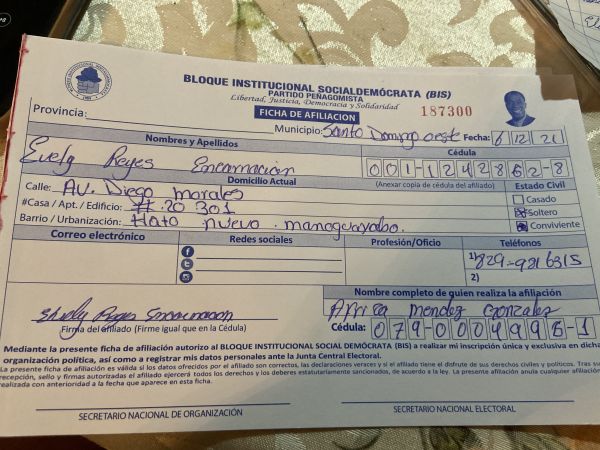 BLOQUE INSTITUCIONAL SOCIALDEMÓCRATA (BIS)
PARTIDO PEÑAGOMISTA
Libertad, Justicia, Democracia y Solidaridad
FICHA DE AFILIACION
187300
Provincia:
Municipio: Santo Domingo oeste Fecha: 6 12 21
Nombres y Apellidos
Cédula
Evely Reyes Encarnación
001-1242862-8
Domicilio Actual
(Anexar copia de cédula del afiliado)
Estado Civil
Calle: AV. Diego morales
Casado
#Casa / Apt. / Edificio: # 20 301
Soltero
Barrio / Urbanización: Hato nuevo. manoguayabo.
Conviviente
Correo electrónico
Redes sociales
Profesión/Oficio
Teléfonos
1) 829-9816315
2)
Nombre completo de quien realiza la afiliación
Africa Mendez Gonzalez
Reyes Encarnacion
Firma del afiliado (Firme igual que en la Cédula)
Cédula: 079-0004996-1
Mediante la presente ficha de afiliación autorizo al BLOQUE INSTITUCIONAL SOCIAL DEMÓCRATA (BIS) a realizar mi inscripción única y exclusiva en dicha
organización política, así como a registrar mis datos personales ante la Junta Central Electoral.
La presente ficha de afiliación es válida si los datos ofrecidos por el afiliado son correctos, las declaraciones veraces y si el afiliado tiene el disfrute de sus derechos civiles y políticos. Tras su
recepción, sello y firmas autorizadas el afiliado ejercerá todos los derechos y los deberes estatutariamente sancionados, de acuerdo a la ley. La presente afiliación anula cualquier afiliación
realizada con anterioridad a la fecha que aparece en esta ficha.
SECRETARIO NACIONAL DE ORGANIZACIÓN
SECRETARIO NACIONAL ELECTORAL